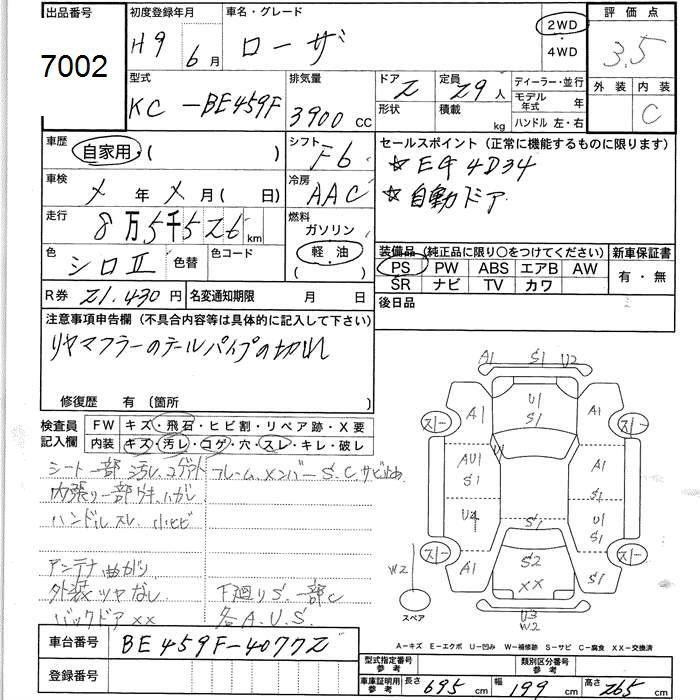 出品番号
7002
初度登録年月
H9 6月
車名・グレード
ローザ
2WD
・
4WD
評価点
3.5
外装 内装
C
型式
KC-BE459F
排気量
3900 CC
ドア
2
形状
定員
29人
積載
kg
ディーラー・並行
モデル年式 年
ハンドル 左・右
車歴
自家用・( )
シフト
F6
車検
メ 年 メ 月( 日)
冷房
AAC
走行
8万5千526 km
燃料
ガソリン
軽・油
( )
色
シロII
色替
色コード
R券 21,430円
名変通知期限 月 日
セールスポイント(正常に機能するものに限ります)
☆EG 4D34
☆自動ドア
装備品(純正品に限り○をつけてください)
PS PW ABS エアB AW
SR ナビ TV カワ
新車保証書
有・無
後日品
注意事項申告欄(不具合内容等は具体的に記入して下さい)
リヤマフラーのテールパイプの切れ
修復歴 有(箇所 )
検査員記入欄
FW キズ・飛石・ヒビ割・リペア跡・X要
内装 キズ・汚レ・コゲ・穴・スレ・キレ・破レ
シート一部汚レ コゲアト
フレーム、メンバーS.C.サビ止め
内張り一部ケキ、ハガレ
ハンドルスレ、小ヒビ
アンテナ曲がり
外装ツヤなし
下廻りS.一部C
バックドアXX
各A.U.S.
A1 S1 U2
A1 U1 S1 A1
スレー スレー
AU1 S1 U1 S1 A1 S1
U4 S1 U1 S1
スレー スレー
A1 S2 XX S1
W2
スペア
U3 W2
A-キズ E-エクボ U-凹み W-補修跡 S-サビ C-腐食 XX-交換済
車台番号 BE459F-40772
登録番号
型式指定番号 参考
類別区分番号 参考
車庫証明用 参考 長さ 695 cm 幅 199 cm 高さ 265 cm